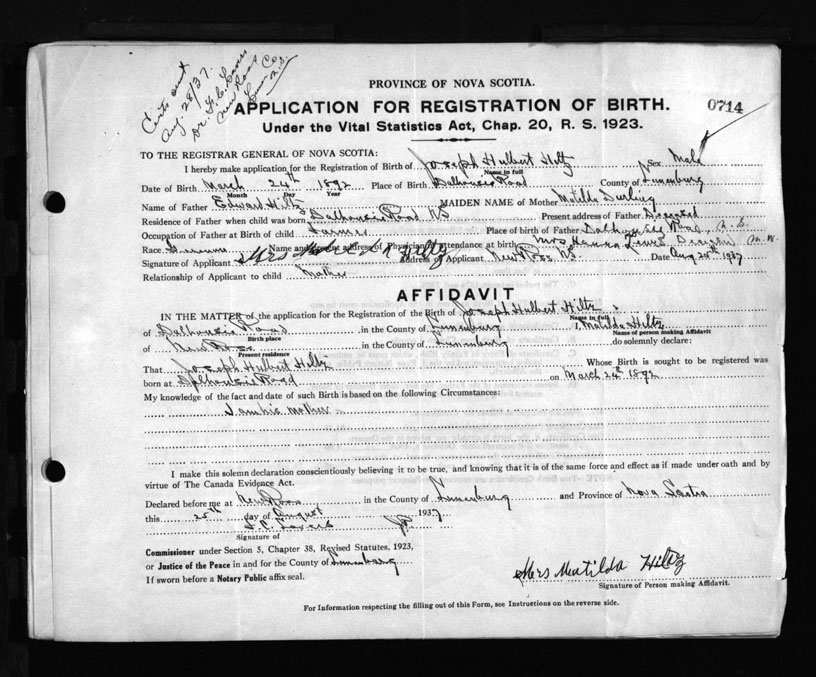 Certs sent
Aug. 28/37.
New Ross
Lun. Co.
N.S.
PROVINCE OF NOVA SCOTIA.
APPLICATION FOR REGISTRATION OF BIRTH. 0714
Under the Vital Statistics Act, Chap. 20, R. S. 1923.
TO THE REGISTRAR GENERAL OF NOVA SCOTIA:
I hereby make application for the Registration of Birth of Joseph Hulbert Hiltz Sex Male
Name in full
Date of Birth March 24th 1892 Place of Birth Dalhousie Road County of Lunenburg
Month Day Year
Name of Father Edward Hiltz MAIDEN NAME of Mother Matilda
Residence of Father when child was born Dalhousie Road NS Present address of Father Deceased
Occupation of Father at Birth of child Farmer Place of birth of Father Dalhousie Road, N.S.
Race German Name and address of Physician in attendance at birth Mrs
Signature of Applicant Mrs Hiltz Address of Applicant New Ross NS. Date Aug 24th 1937
Relationship of Applicant to child Mother
AFFIDAVIT
IN THE MATTER of the application for the Registration of the Birth of Joseph Hulbert Hiltz
Name in full
of Dalhousie Road in the County of Lunenburg I, Matilda Hiltz
Birth place Name of person making Affidavit
of New Ross in the County of Lunenburg do solemnly declare:
Present residence
That Joseph Hulbert Hiltz Whose Birth is sought to be registered was
born at Dalhousie Road on March 24th 1892
My knowledge of the fact and date of such Birth is based on the following Circumstances:
I am his mother
I make this solemn declaration conscientiously believing it to be true, and knowing that it is of the same force and effect as if made under oath and by
virtue of The Canada Evidence Act.
Declared before me at New Ross in the County of Lunenburg and Province of Nova Scotia
this 25th day of August 1937
JP
Signature of
Commissioner under Section 5, Chapter 38, Revised Statutes, 1923,
or Justice of the Peace in and for the County of Lunenburg
If sworn before a Notary Public affix seal.
Mrs Matilda Hiltz
Signature of Person making Affidavit.
For Information respecting the filling out of this Form, see Instructions on the reverse side.